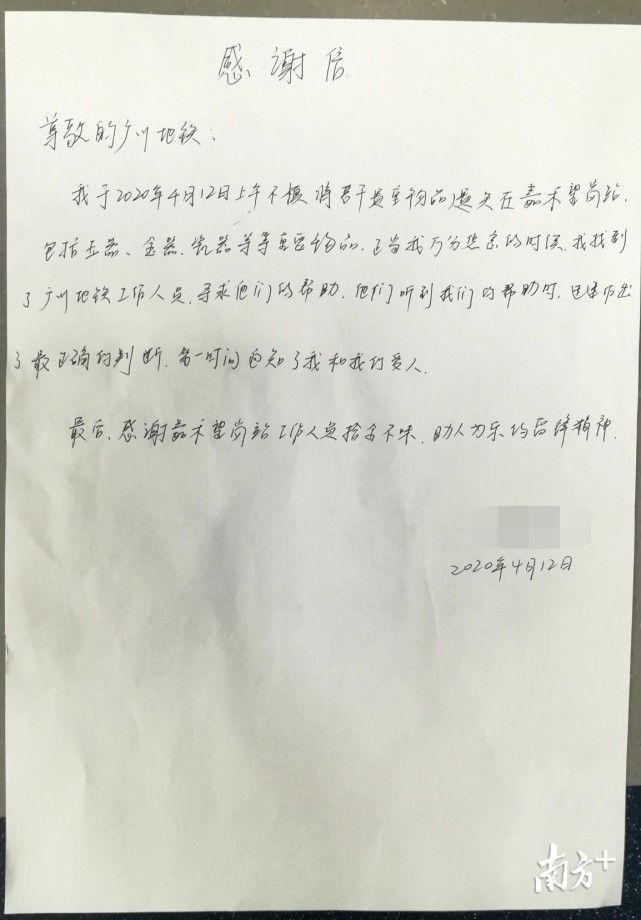 感谢信
尊敬的广州地铁：
我于2020年4月12日上午不慎将若干贵重物品遗失在嘉禾望岗站,
包括玉器、金器、瓷器等等贵重物品.正当我万分焦急的时候,我找到
了广州地铁工作人员,寻求他们的帮助.他们听到我们的帮助时,迅速作出
了最正确的判断,第一时间通知了我和我的爱人.
最后,感谢嘉禾望岗站工作人员拾金不昧,助人为乐的雷锋精神.
2020年4月12日
南方+